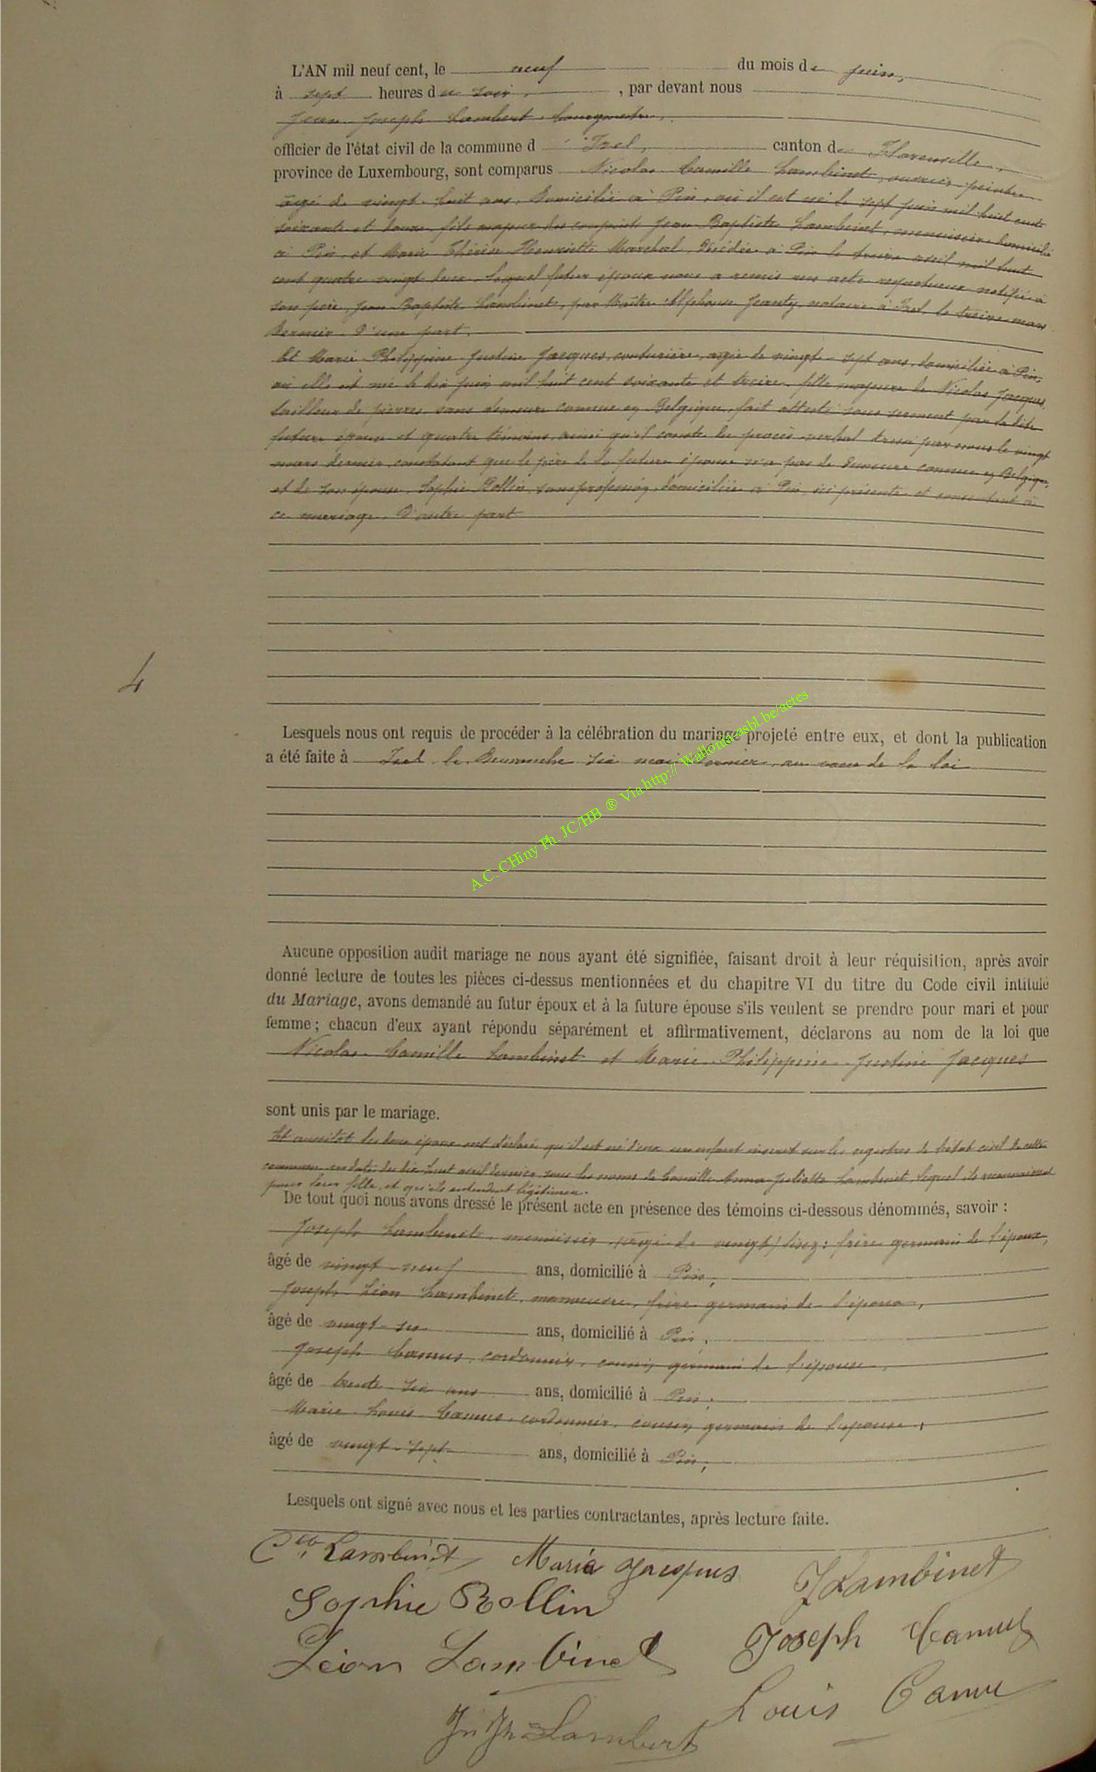 L'AN mil neuf cent, le neuf du mois de juin,
à sept heures du soir, par devant nous
Jean Joseph Lambert bourgmestre,
officier de l'état civil de la commune d Izel, canton de Florenville,
province de Luxembourg, sont comparus Nicolas Camille Lambinet, ouvrier peintre
âgé de vingt huit ans, domicilié à Pin, où il est né le sept juin mil huit cent
soixante et douze, fils majeur des conjoints Jean Baptiste Lambinet, menuisier domicilié
à Pin, et Marie Thérèse Henriette Maréchal, décédée à Pin le treize avril mil huit
cent quatre vingt deux, lequel futur époux nous a remis un acte respectueux notifié à
son père, Jean Baptiste Lambinet, par Maître Alphonse Jeanty, notaire à Izel, le treize mars
dernier. D'une part.
Et Marie Philippine Justine Jacques, couturière, âgée de vingt sept ans, domiciliée à Pin,
où elle est née le dix juin mil huit cent soixante et treize, fille majeure de Nicolas Jacques
tailleur de pierres sans demeure connue en Belgique, fait attesté sous serment par la dite
future épouse et quatre témoins ainsi qu'il conste du procès-verbal dressé par nous le vingt
mars dernier, constatant que le père de la future épouse n'a pas de demeure connue en Belgique,
et de son épouse, Sophie Rollin, sans profession, domiciliée à Pin, ici présente et consentant à
ce mariage. D'autre part
4
Lesquels nous ont requis de procéder à la célébration du mariage projeté entre eux, et dont la publication
a été faite à Izel le Dimanche six mai dernier, au vœu de la loi
A.C. CHiny Ph. JC/HB ® Via http:// Wallonia-asbl.be/actes
Aucune opposition audit mariage ne nous ayant été signifiée, faisant droit à leur réquisition, après avoir
donné lecture de toutes les pièces ci-dessus mentionnées et du chapitre VI du titre du Code civil intitulé
du Mariage, avons demandé au futur époux et à la future épouse s'ils veulent se prendre pour mari et pour
femme ; chacun d'eux ayant répondu séparément et affirmativement, déclarons au nom de la loi que
Nicolas Camille Lambinet et Marie Philippine Justine Jacques
sont unis par le mariage.
Et aussitôt les deux époux ont déclaré qu'il est né d'eux un enfant inscrit sur les registres de l'état civil de cette
commune, en date du dix huit avril dernier, sous les noms de Camille Anna Juliette Lambinet, lequel ils reconnaissent
pour leur fille, et qu'ils entendent légitimer.
De tout quoi nous avons dressé le présent acte en présence des témoins ci-dessous dénommés, savoir :
Joseph Lambinet, menuisier, âgé de vingt/lisez : frère germain de l'époux,
âgé de vingt-neuf ans, domicilié à Pin,
Joseph Léon Lambinet, manoeuvre, frère germain de l'époux,
âgé de vingt six ans, domicilié à Pin,
Joseph Camus, cordonnier, cousin germain de l'épouse,
âgé de trente six ans ans, domicilié à Pin,
Marie Louis Camus, cordonnier, cousin germain de l'épouse,
âgé de vingt-sept ans, domicilié à Pin,
Lesquels ont signé avec nous et les parties contractantes, après lecture faite.
Lambinet Maria Jacques J Lambinet
Sophie Rollin
Joseph Camus
Léon Lambinet
Louis Camu
Lambert